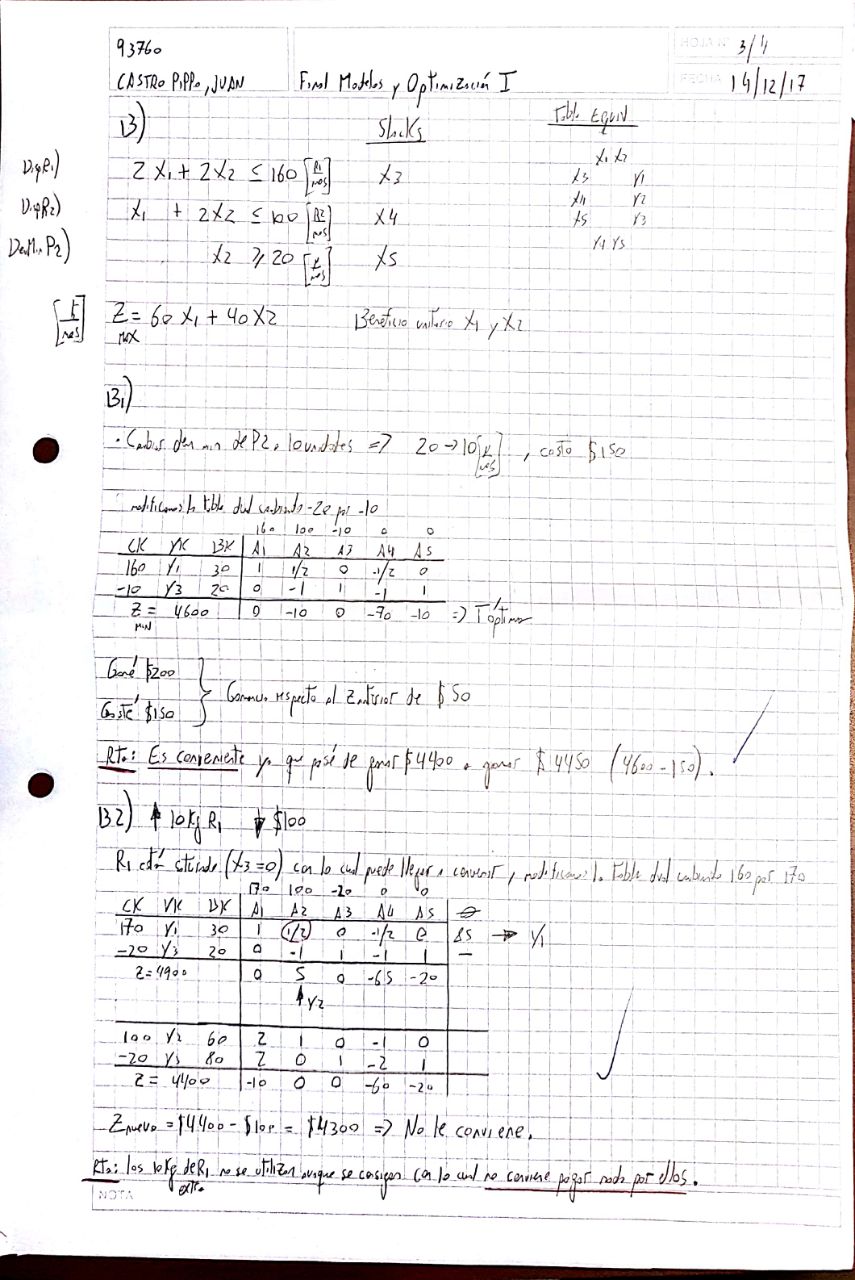 93760
HOJA N° 3/4
CASTRO PIPPO, JUAN Final Modelos y Optimización I
FECHA 14/12/17
B) Slacks Tabla Equiv
X1 X2
DispR1) 2X1 + 2X2 ≤ 160 [R1/mes] X3
X3 Y1
DispR2) X1 + 2X2 ≤ 100 [R2/mes] X4
X4 Y2
X5 Y3
DemMin P2) X2 ≥ 20 [u/mes] X5
Y4 Y5
[$/mes] Z = 60X1 + 40X2 Beneficio unitario X1 y X2
MAX
B1)
· Cambiar dem min de P2 a 10 unidades => 20→10 [u/mes], costo $150
modificamos la tabla dual cambiando -20 por -10
160 100 -10 0 0
CK YK BK A1 A2 A3 A4 A5
160 Y1 30 1 1/2 0 -1/2 0
-10 Y3 20 0 -1 1 -1 1
Z = 4600 0 -10 0 -70 -10 => T óptima
MIN
Gané $200
Gasté $150
Ganancia respecto al Z anterior de $50
Rta: Es conveniente ya que pasé de ganar $4400 a ganar $4450 (4600-150).
B2) ↑ 10Kg R1 ↓ $100
R1 está saturado (X3=0) con lo cual puede llegar a convenir, modificamos la tabla dual cambiando 160 por 170
170 100 -20 0 0
CK YK BK A1 A2 A3 A4 A5 θ
170 Y1 30 1 1/2 0 -1/2 0 → Y1
-20 Y3 20 0 -1 1 -1 1 —
Z=4900 0 5 0 -65 -20
↑ Y2
100 Y2 60 2 1 0 -1 0
-20 Y3 80 2 0 1 -2 1
Z = 4400 -10 0 0 -60 -20
Znuevo = $4400 - $100 = $4300 => No le conviene.
Rta: los 10Kg de R1 no se utilizan aunque se consigan con lo cual no conviene pagar nada por ellos.
extra
NOTA